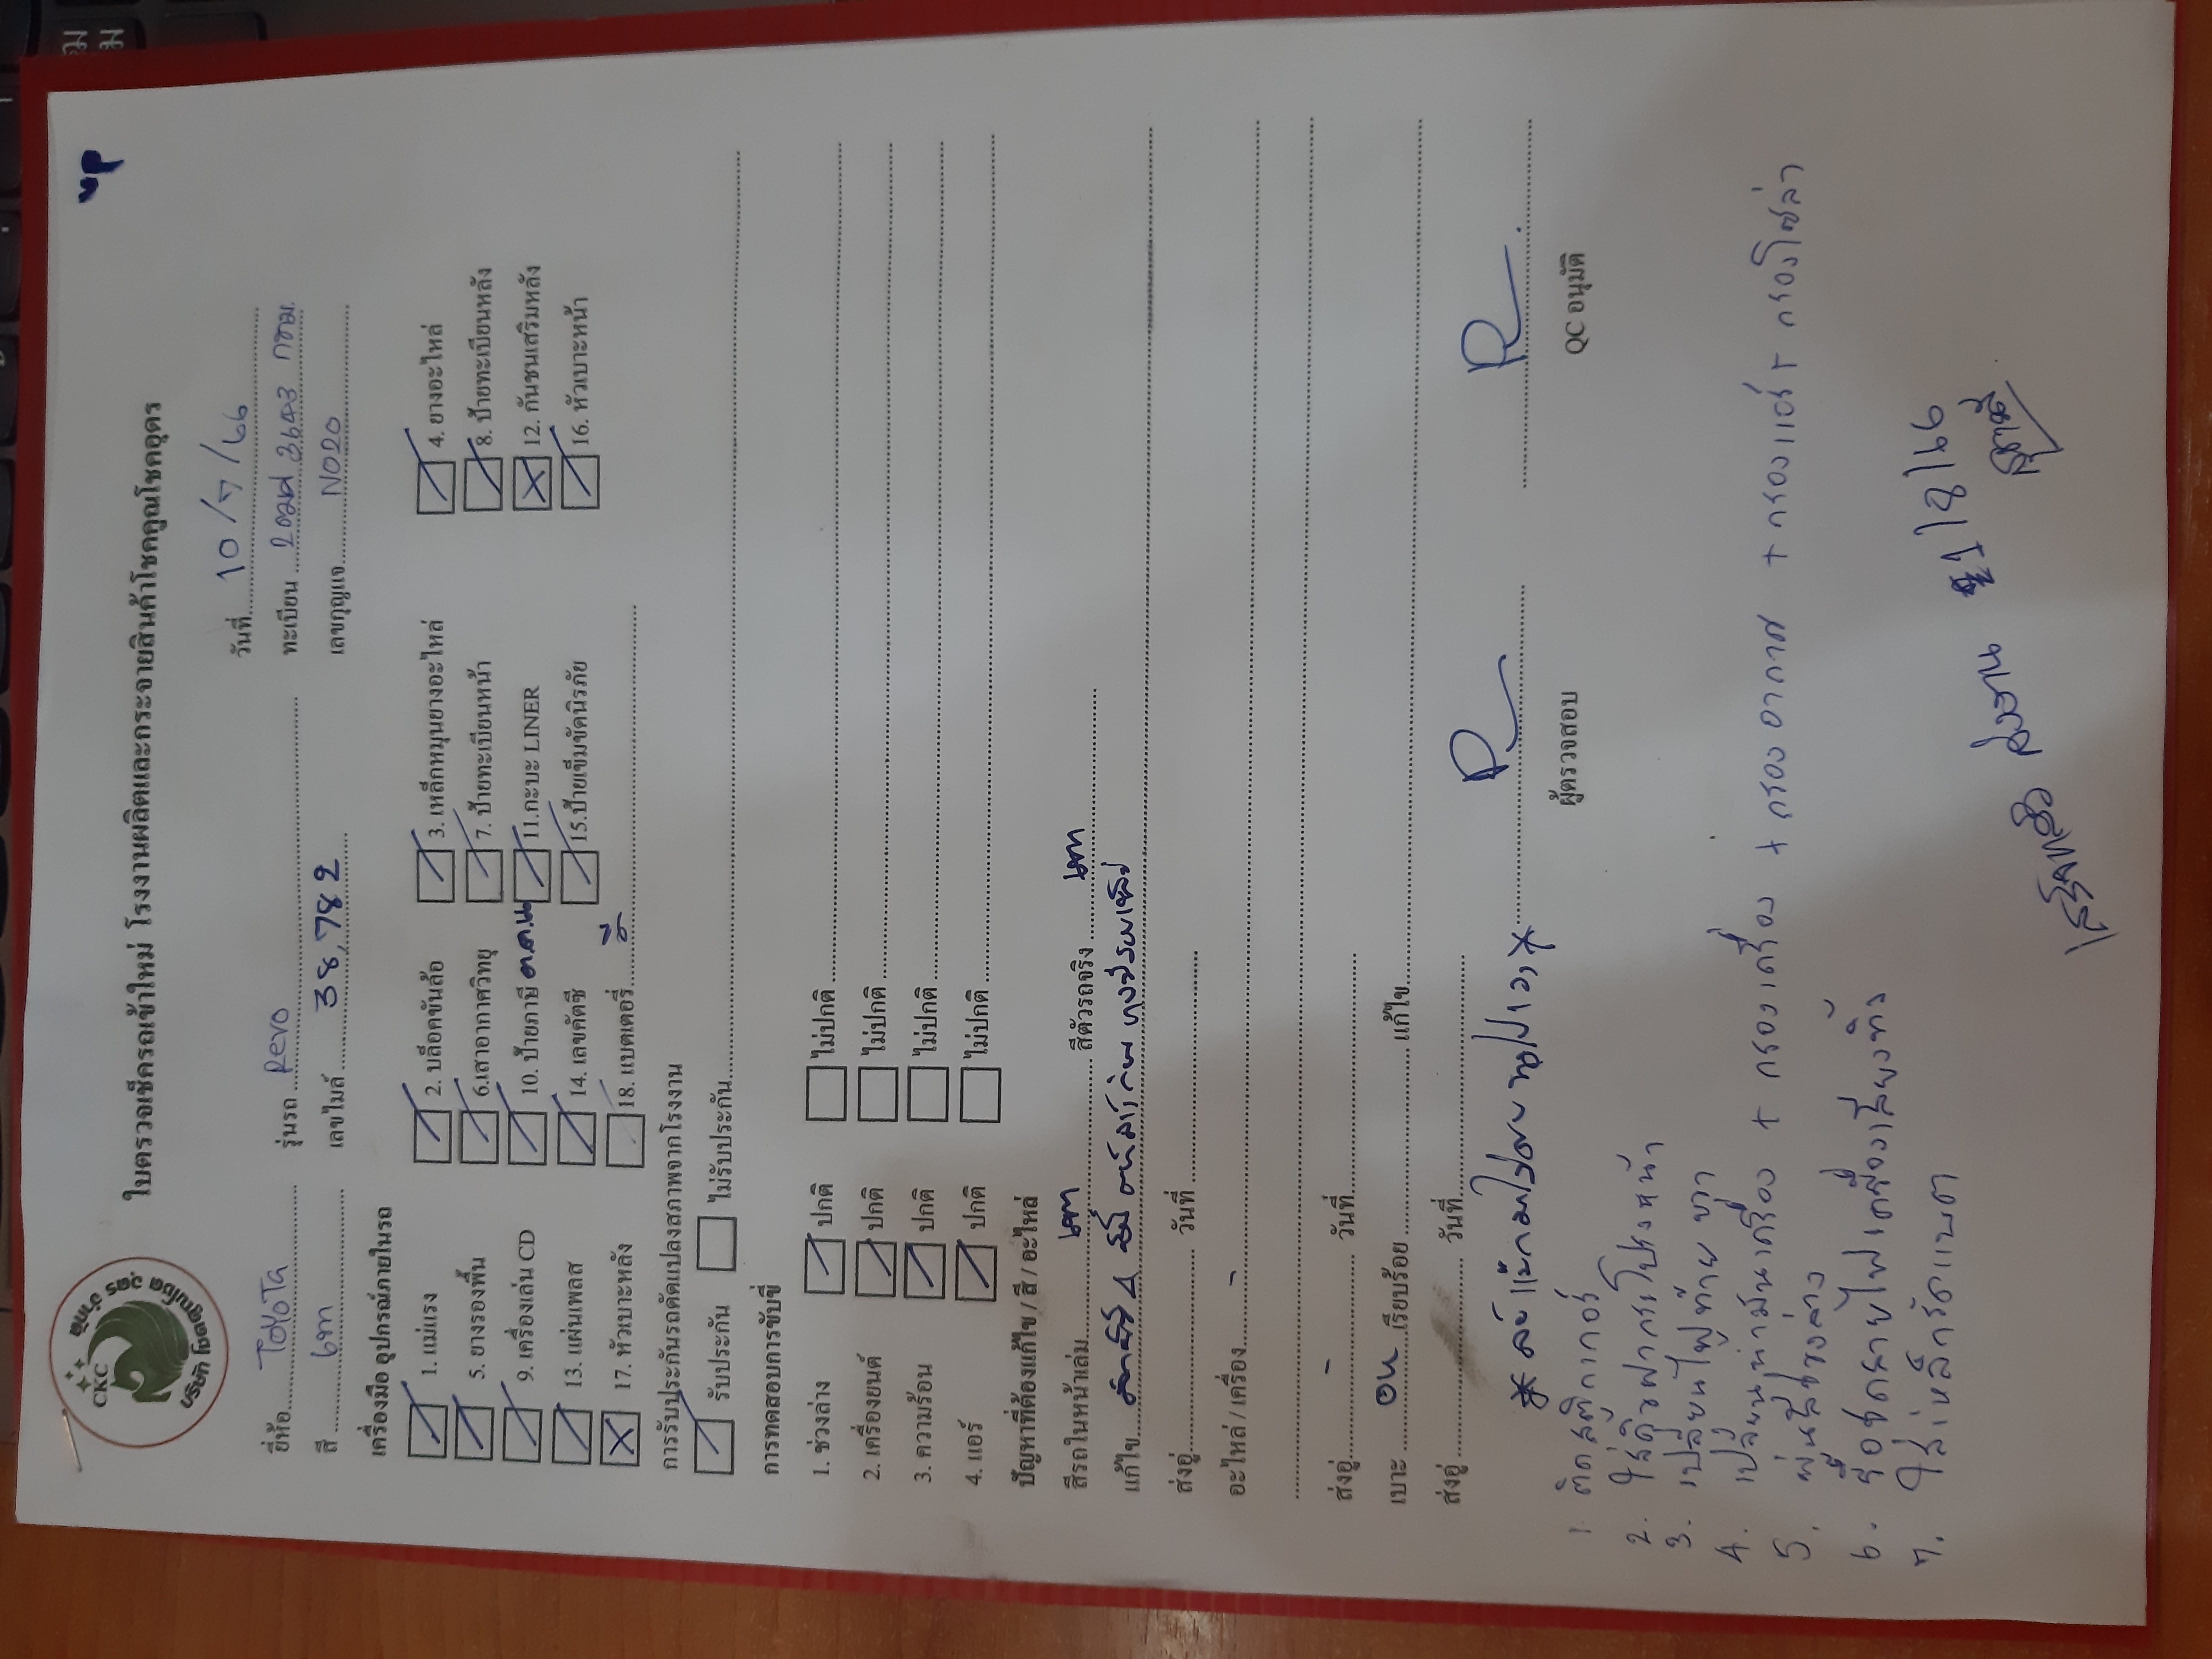 CKC
บริษัท โชคคูณโชค อุดร จำกัด
ใบตรวจเช็ครถเข้าใหม่ โรงงานผลิตและกระจายสินค้าโชคคูณโชคอุดร
วันที่ 10/7/66
ยี่ห้อ TOYOTA รุ่นรถ Revo ทะเบียน 2ฒฒ 3643 กทม.
สี เทา เลขไมล์ 38,782 เลขกุญแจ NO20
เครื่องมือ อุปกรณ์ภายในรถ
1. แม่แรง 2. บล็อคขันล้อ 3. เหล็กหมุนยางอะไหล่ 4. ยางอะไหล่
5. ยางรองพื้น 6.เสาอากาศวิทยุ 7. ป้ายทะเบียนหน้า 8. ป้ายทะเบียนหลัง
9. เครื่องเล่น CD 10. ป้ายภาษี 11.กะบะ LINER 12. กันชนเสริมหลัง
13. แผ่นเพลส 14. เลขคัตซี 15.ป้ายเข็มขัดนิรภัย 16. หัวเบาะหน้า
17. หัวเบาะหลัง 18. แบตเตอรี่
การรับประกันรถดัดแปลงสภาพจากโรงงาน
รับประกัน ไม่รับประกัน
การทดสอบการขับขี่
1. ช่วงล่าง ปกติ ไม่ปกติ
2. เครื่องยนต์ ปกติ ไม่ปกติ
3. ความร้อน ปกติ ไม่ปกติ
4. แอร์ ปกติ ไม่ปกติ
ปัญหาที่ต้องแก้ไข / สี / อะไหล่
สีรถในหน้าเล่ม เทา สีตัวรถจริง เทา
แก้ไข
ส่งอู่ วันที่
อะไหล่ / เครื่อง -
ส่งอู่ - วันที่
เบาะ เรียบร้อย แก้ไข
ส่งอู่ วันที่
ผู้ตรวจสอบ QC อนุมัติ
1. ติดสติ๊กเกอร์
2. ใส่คิ้วฝากระโปรงหน้า
3. เปลี่ยนไฟท้าย ขวา
4. เปลี่ยนน้ำมันเครื่อง + กรองเครื่อง + กรองอากาศ + กรองแอร์ + กรองโซล่า
5. พ่นสีช่วงล่าง
6. รื้อชุดสายไฟเครื่องเสียงทิ้ง
7. ใส่เหล็กรัดแบต
ส่งงาน 1/8/66